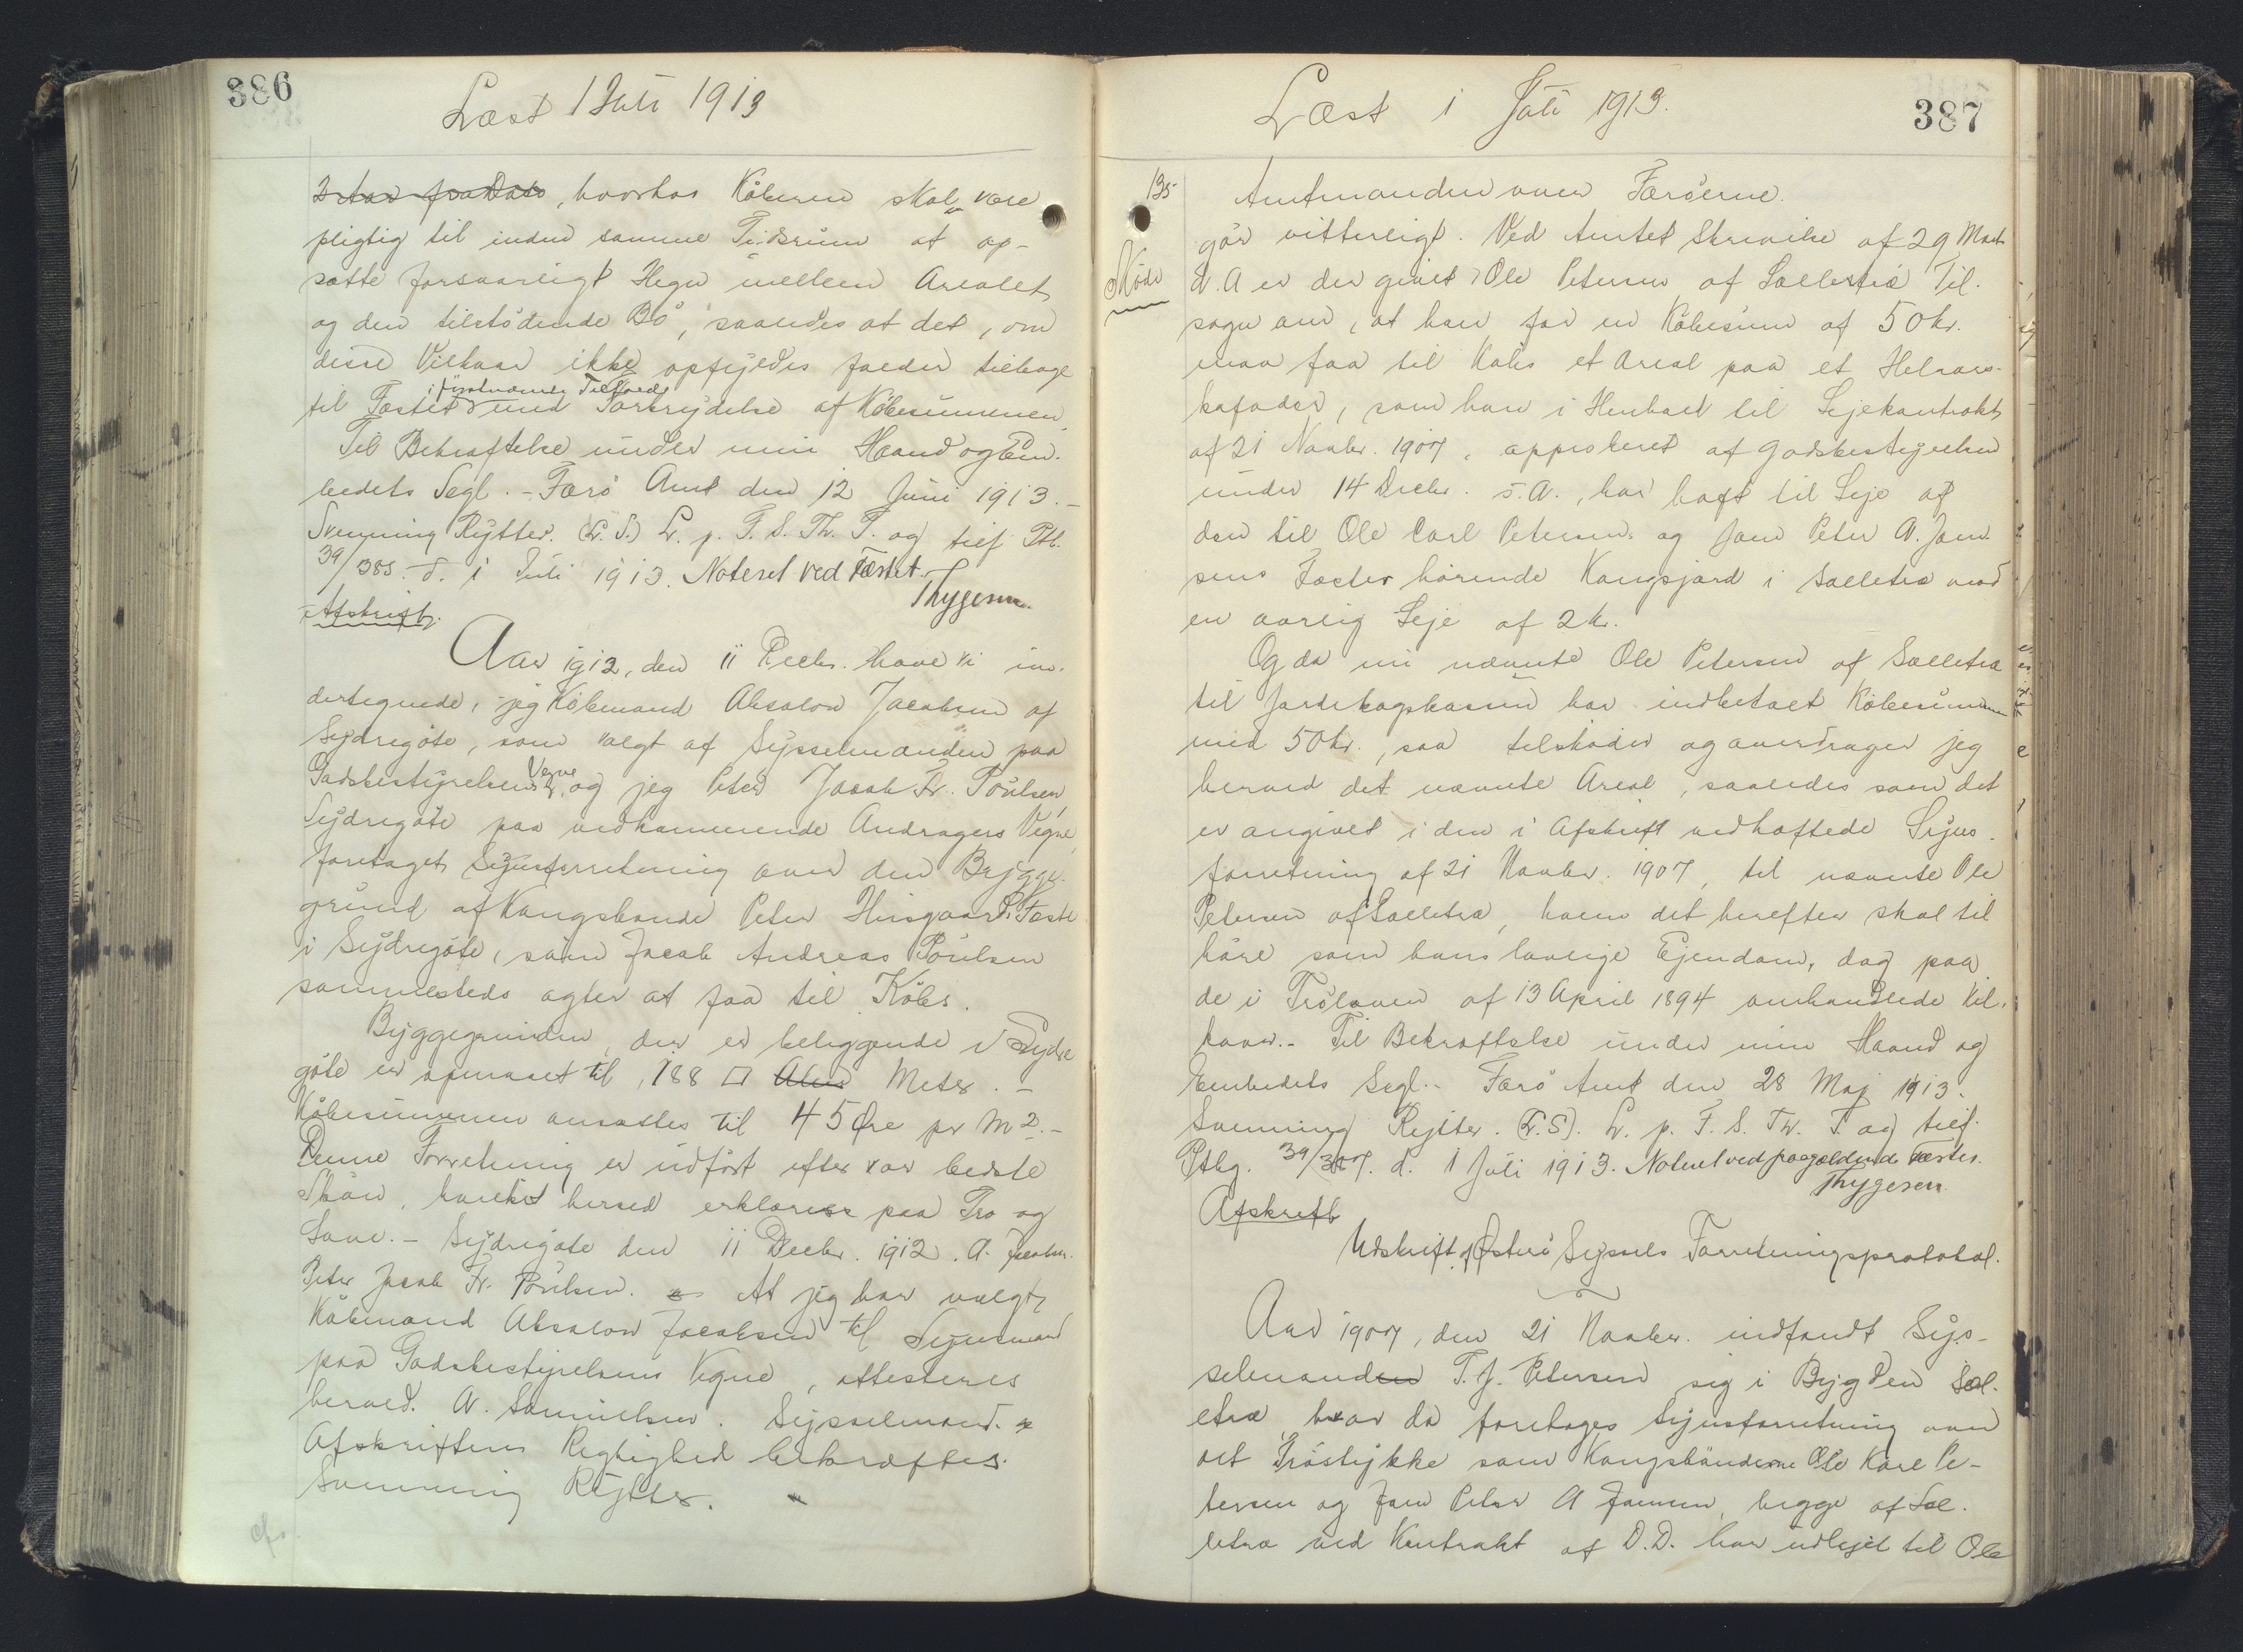 386
Læst 1 Juli 1913
2 Aar fra Dato, hvorhos Köberen skal være
pligtig til inden samme Tidsrum at op-
sætte forsvarligt Hegn mellem Arealet
og den tilstödende Bö, saaledes at det, om
disse Vilkaar ikke opfyldes falder tilbage
i förstnævnte Tilfælde
til Fæstet mod Tilbagebetaling af Köbesummen.
Til Bekræftelse under min Haand og Em-
bedets Segl. - Færö Amt den 12 Juni 1913. -
Svenning Rytter. (L. S.) L. p. F. S. Th. T. og tilf Ptl.
39/385. d. 1 Juli 1913. Noteret ved Fæstet.
Thygesen.
Afskrift.
Aar 1912, den 11 Decbr. have vi un-
dertegnede, jeg Köbmand Absalon Jacobsen af
Sydregöte, som valgt af Sysselmanden paa
Godsbestyrelsens Vegne og jeg Peter Jacob Fr. Poulsen
Sydregöte paa vedkommende Andragers Vegne,
foretaget Synsforretning over den Bygge-
grund af Kongsbonde Peter Husgaards Fæste
i Sydregöte, som Jacob Andreas Poulsen
sammesteds agter at faa til Köbs.
Byggegrunden, der er beliggende i Sydre
göte er opmaalt til, 188 □ Alen Meter. -
Köbesummen ansættes til 45 Øre pr M². -
Denne Forretning er udfört efter vor bedste
Skön, hvilket herved erklæres paa Tro og
Love. - Sydregöte den 11 Decbr. 1912. A. Jacobsen.
Peter Jacob Fr. Poulsen. At jeg har valgt
Köbmand Absalon Jacobsen til Synsmand
paa Godsbestyrelsens Vegne, attesteres
herved. A. Samuelsen. Sysselmand.
Afskriftens Rigtighed bekræftes.
Svenning Rytter.
387
Læst 1 Juli 1913.
135
Amtmanden over Færöerne.
gör vitterligt. Ved Amtets Skrivelse af 29 Marts
Sköde
d. A er der givet Ole Petersen af Sælletræ Til-
sagn om, at han for en Köbesum af 50 kr.
maa faa til Köbs et Areal paa
som han i Henhold til Lejekontrakt
af 21 Novbr. 1907, approberet af Godsbestyrelsen
under 14 Decbr. s. A., har haft til Leje af
den til Ole Carl Petersens og Jom Peter A. Jom-
sens Fæster hörende Kongsjord i Sælletræ mod
en aarlig Leje af 2 kr.
Og da nu nævnte Ole Petersen af Sælletræ
til Jordebogskassen har indbetalt Köbesummen
med 50 kr., saa tilsköder og overdrager jeg
herved det nævnte Areal, saaledes som det
er angivet i den i Afskrift vedhæftede Syns-
forretning af 21 Novbr. 1907, til nævnte Ole
Petersen af Sælletræ, hvem det herefter skal til
höre som hans lovlige Ejendom, dog paa
de i Frölaven af 13 April 1894 omhandlede Vil-
kaar. - Til Bekræftelse under min Haand og
Embedets Segl. - Færö Amt den 28 Maj 1913.
Svenning Rytter. (L. S). L. p. F. S. Th. T. og tilf.
Ptlg. 39/387. d. 1 Juli 1913. Noteret ved paagældende Fæster.
Thygesen
Afskrift
Udskrift af Østerö Syssels Forretningsprotokol.
Aar 1907, den 21 Novber. indfandt Sys-
selmanden T. J. Petersen sig i Bygden Sæl-
letræ, hvor da foretages Synsforretning over
det Tröstykke som Kongsbönderne Ole Karl Pe-
tersen og Jom Peter A Jomsen, begge af Sæl-
letræ ved Kontrakt af D. D. har udlejet til Ole